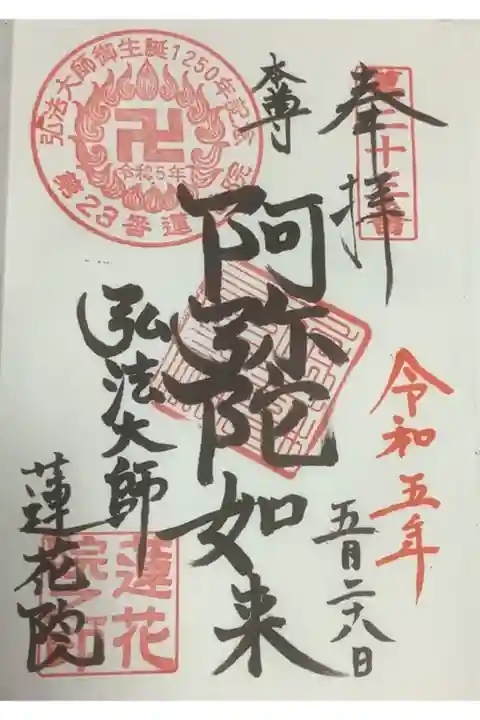 奉拝
第二十三番
令和五年
五月二十八日
本尊
阿弥陀如来
弘法大師
蓮花院
弘法大師御生誕1250年記念
令和5年
第23番蓮花院
蓮花
院